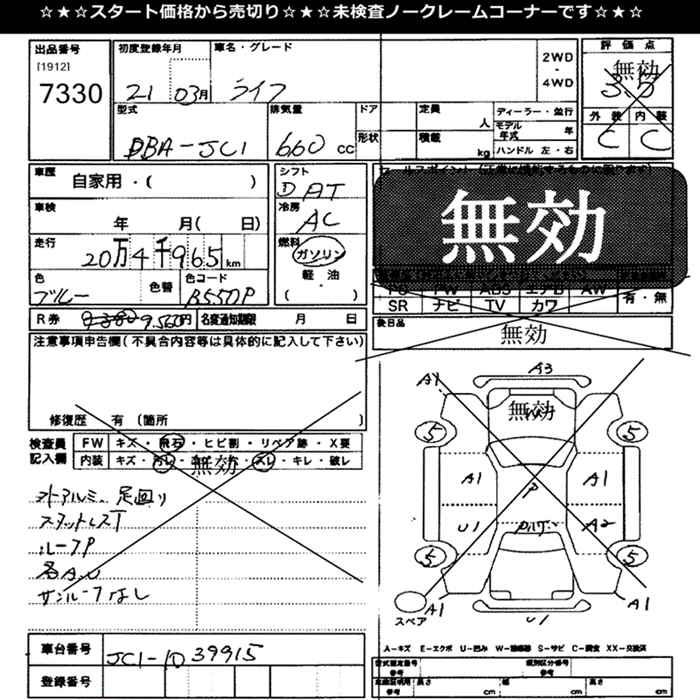 ☆★☆スタート価格から売切り☆★☆未検査ノークレームコーナーです☆★☆
出品番号 初度登録年月 車名・グレード 2WD・4WD 評価点
[1912]
7330 21 03月 ライフ 無効 3.5
型式 排気量 ドア 定員 人 ディーラー・並行 外装 内装
モデル年式 年
形状 積載 kg ハンドル 左・右
DBA-JC1 660 CC C C
車歴 自家用・( ) シフト
DAT
車検 年 月( 日) 冷房
AC
無効
走行 20万4千965km 燃料
ガソリン
軽・油
( )
色 色替 色コード
ブルー B550P
SR ナビ TV カワ 有・無
R券 9,560円 名変通知期限 月 日
後日品 無効
注意事項申告欄(不具合内容等は具体的に記入して下さい)
修復歴 有 (箇所 )
検査員記入欄 FW キズ・飛石・ヒビ割・リペア跡・X要
内装 キズ・ スレ・キレ・破レ
無効
社外アルミ、足廻り
ループP
各A.U
サンルーフなし
A1 A3
無効
5 5
A1 A1
P
U1 A2
5 5
スペア A1 U1 A1
A-キズ E-エクボ U-凹み W-補修跡 S-サビ C-腐食 XX-交換済
車台番号 JC1-1039915
登録番号
参考 長さ cm 幅 cm 高さ cm